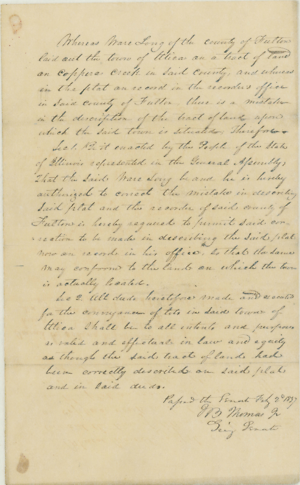 Whereas Ware Long of the county of Fulton
laid out the town of Utica on a tract of land
on Copperas Creek in said County, and whereas
in the plat on record in the recorders office
in said county of Fulton there is a mistake
in the description of the tract of land upon
which the said town is situated Therefore
Sec 1 Be it enacted by the People of the State
of Illinois represented in the General Assembly,
That the said Ware Long be and he is hereby
authorized to correct the mistake in describing
said plat and the recorder of said county of
Fulton is hereby required to permit said cor-
rection to be made in describing the said plat
now on record in his office so that the same
may conform to the lands on which the town
is actually located.
Sec 2 All deeds heretofore made and
for the conveyance of lots in said town of
Utica shall be to all intents and purposes
as valid and effectual in law and equity
as though the said tract of lands had
been correctly described on said plat
and in said deeds.
Passed the Senate Feby 2d 1837
B Thomas Jr
Senate